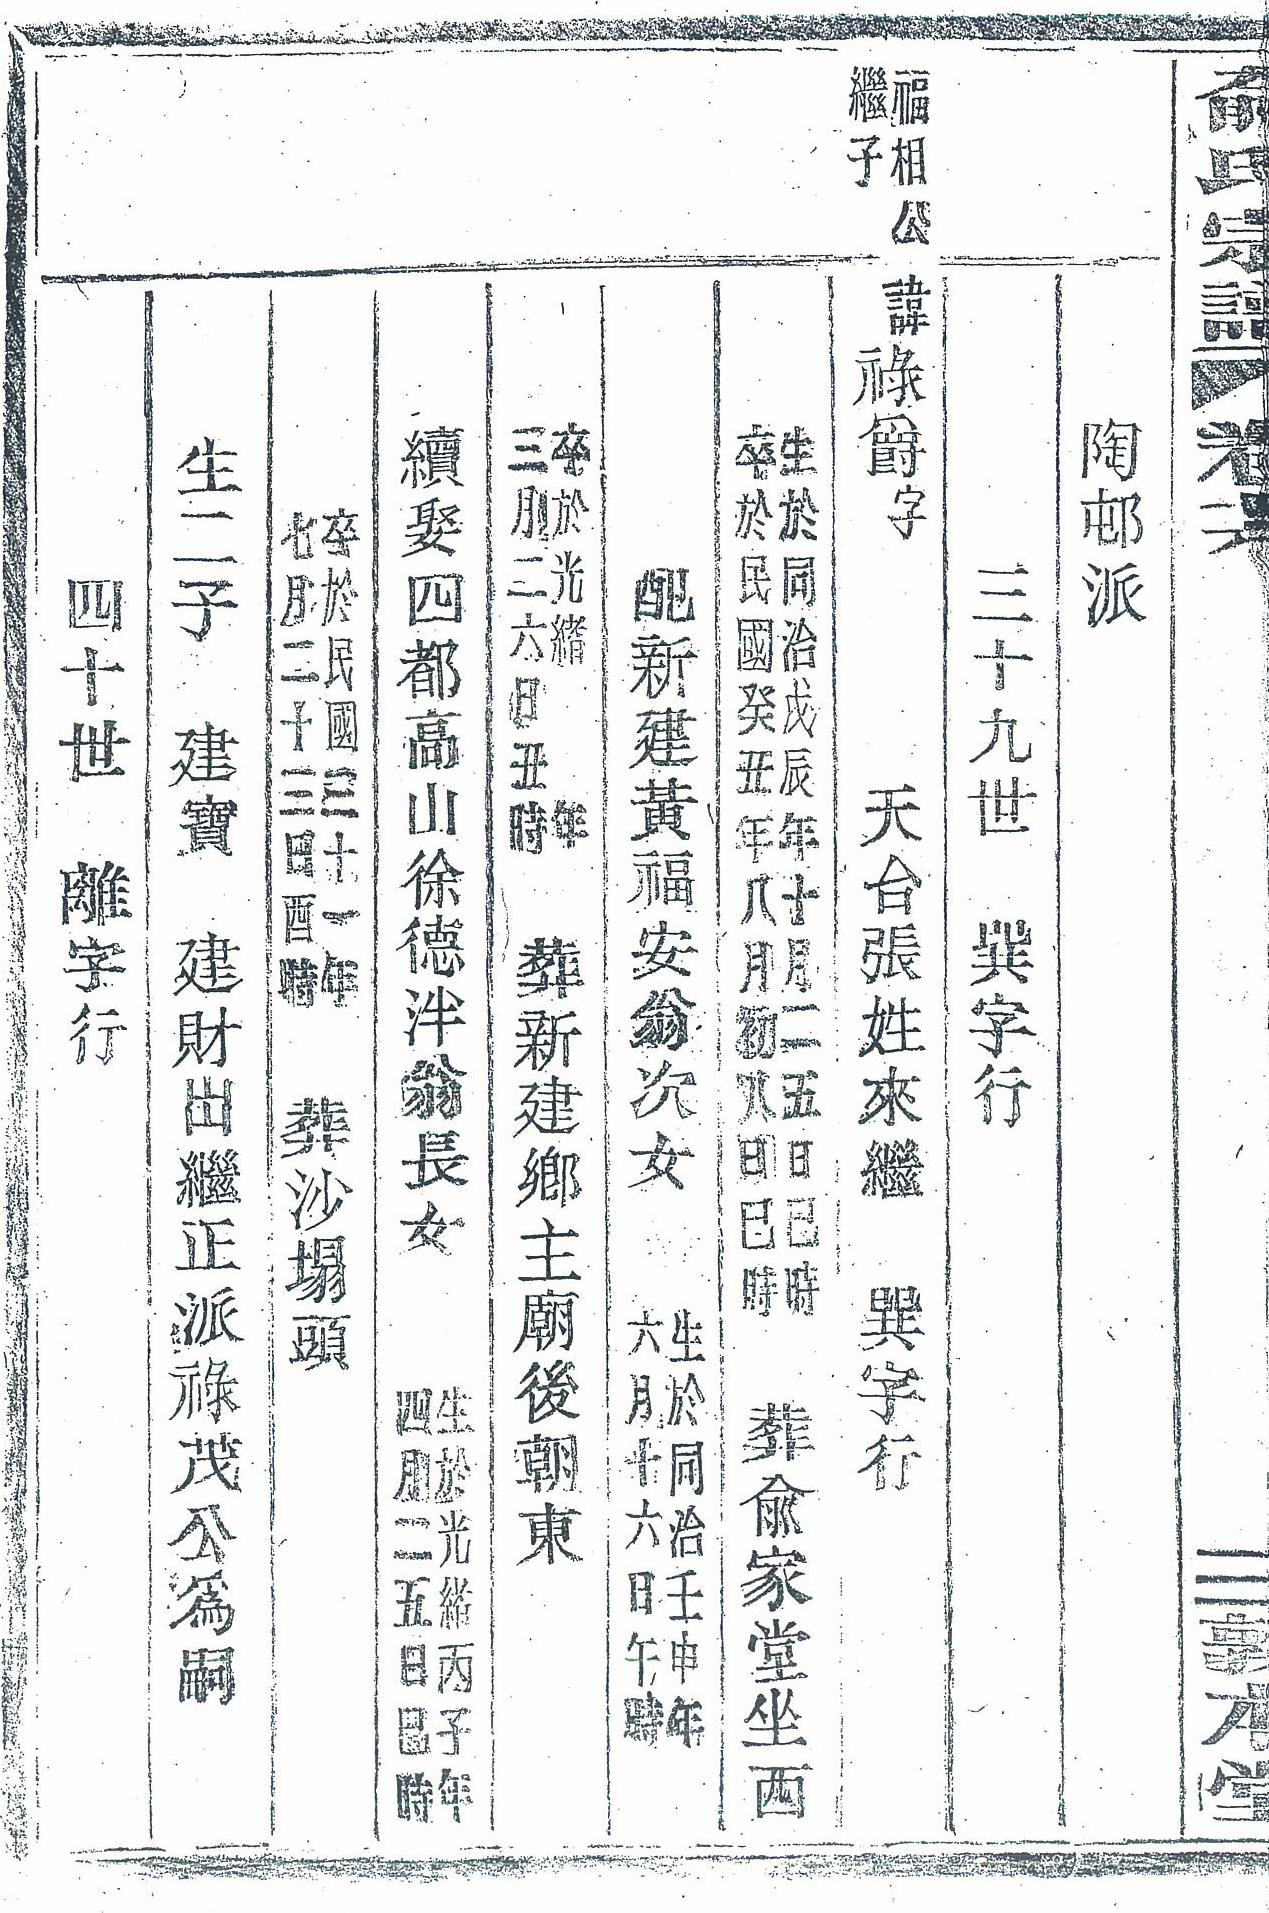 俞氏宗譜 卷六 三 敦本堂
陶邨派
三十九世 巽字行
福相公
繼子
諱祿爵字 天台張姓來繼 巽字行
生於同治戊辰年十月二五日巳時
卒於民國癸丑年八月初八日巳時
葬俞家堂坐西
配新建黃福安翁次女
生於同治壬申年
六月十六日午時
卒於光緒 年
三月二六日丑時
葬新建鄉主廟後朝東
續娶四都高山徐德泮翁長女
生於光緒丙子年
四月二五日巳時
卒於民國三十一年
七月二十三日酉時
葬沙塌頭
生二子 建寶 建財出繼正派祿茂公爲嗣
四十世 離字行